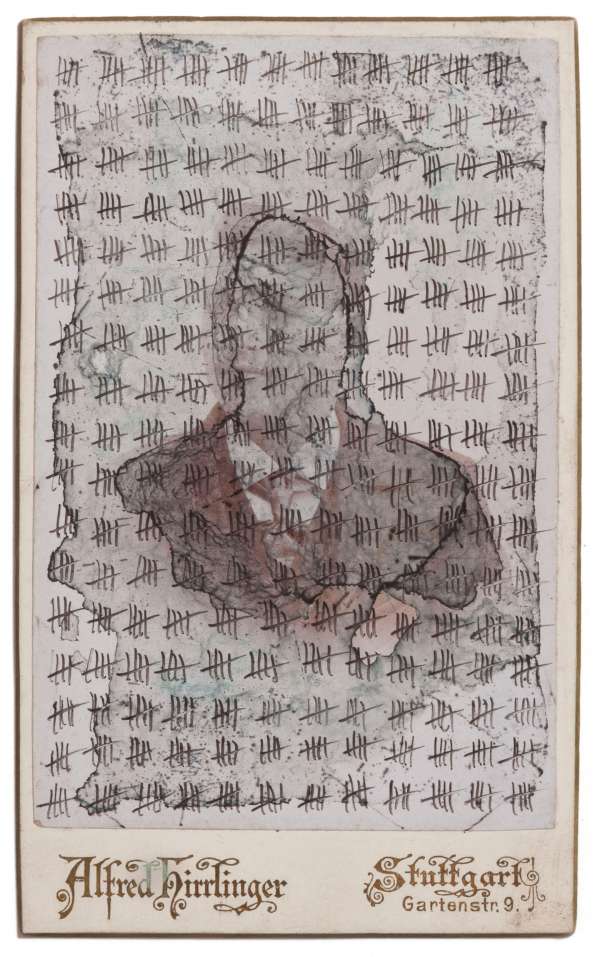 Alfred Hirrlinger
Stuttgart
Gartenstr. 9.